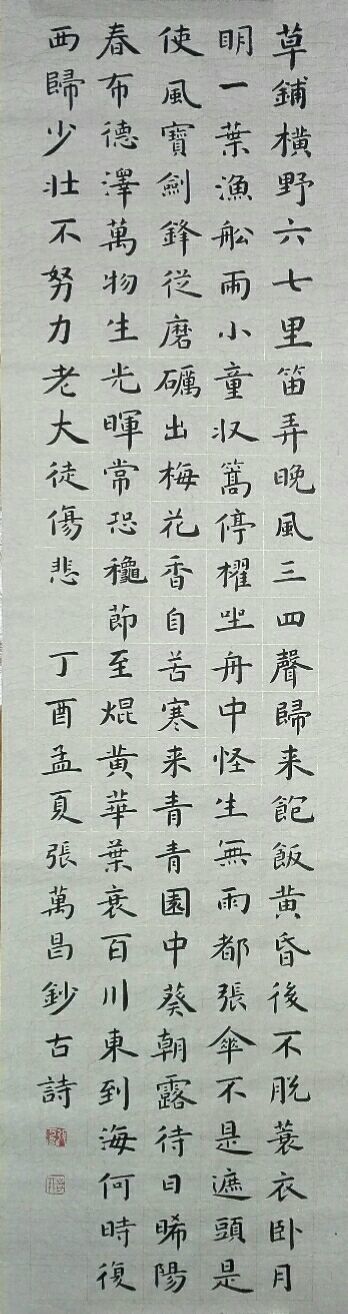 草鋪橫野六七里笛弄晚風三四聲歸来飽飯黄昏後不脱蓑衣卧月
明一葉漁船兩小童收篙停櫂坐舟中怪生無雨都張傘不是遮頭是
使風寶劍鋒從磨礪出梅花香自苦寒来青青園中葵朝露待日晞陽
春布德澤萬物生光暉常恐龝節至焜黄華葉衰百川東到海何時復
西歸少壯不努力老大徒傷悲 丁酉孟夏張萬昌鈔古詩